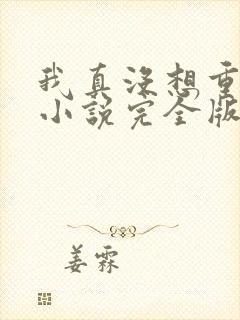 我真没想重
小说完全版
姜霖